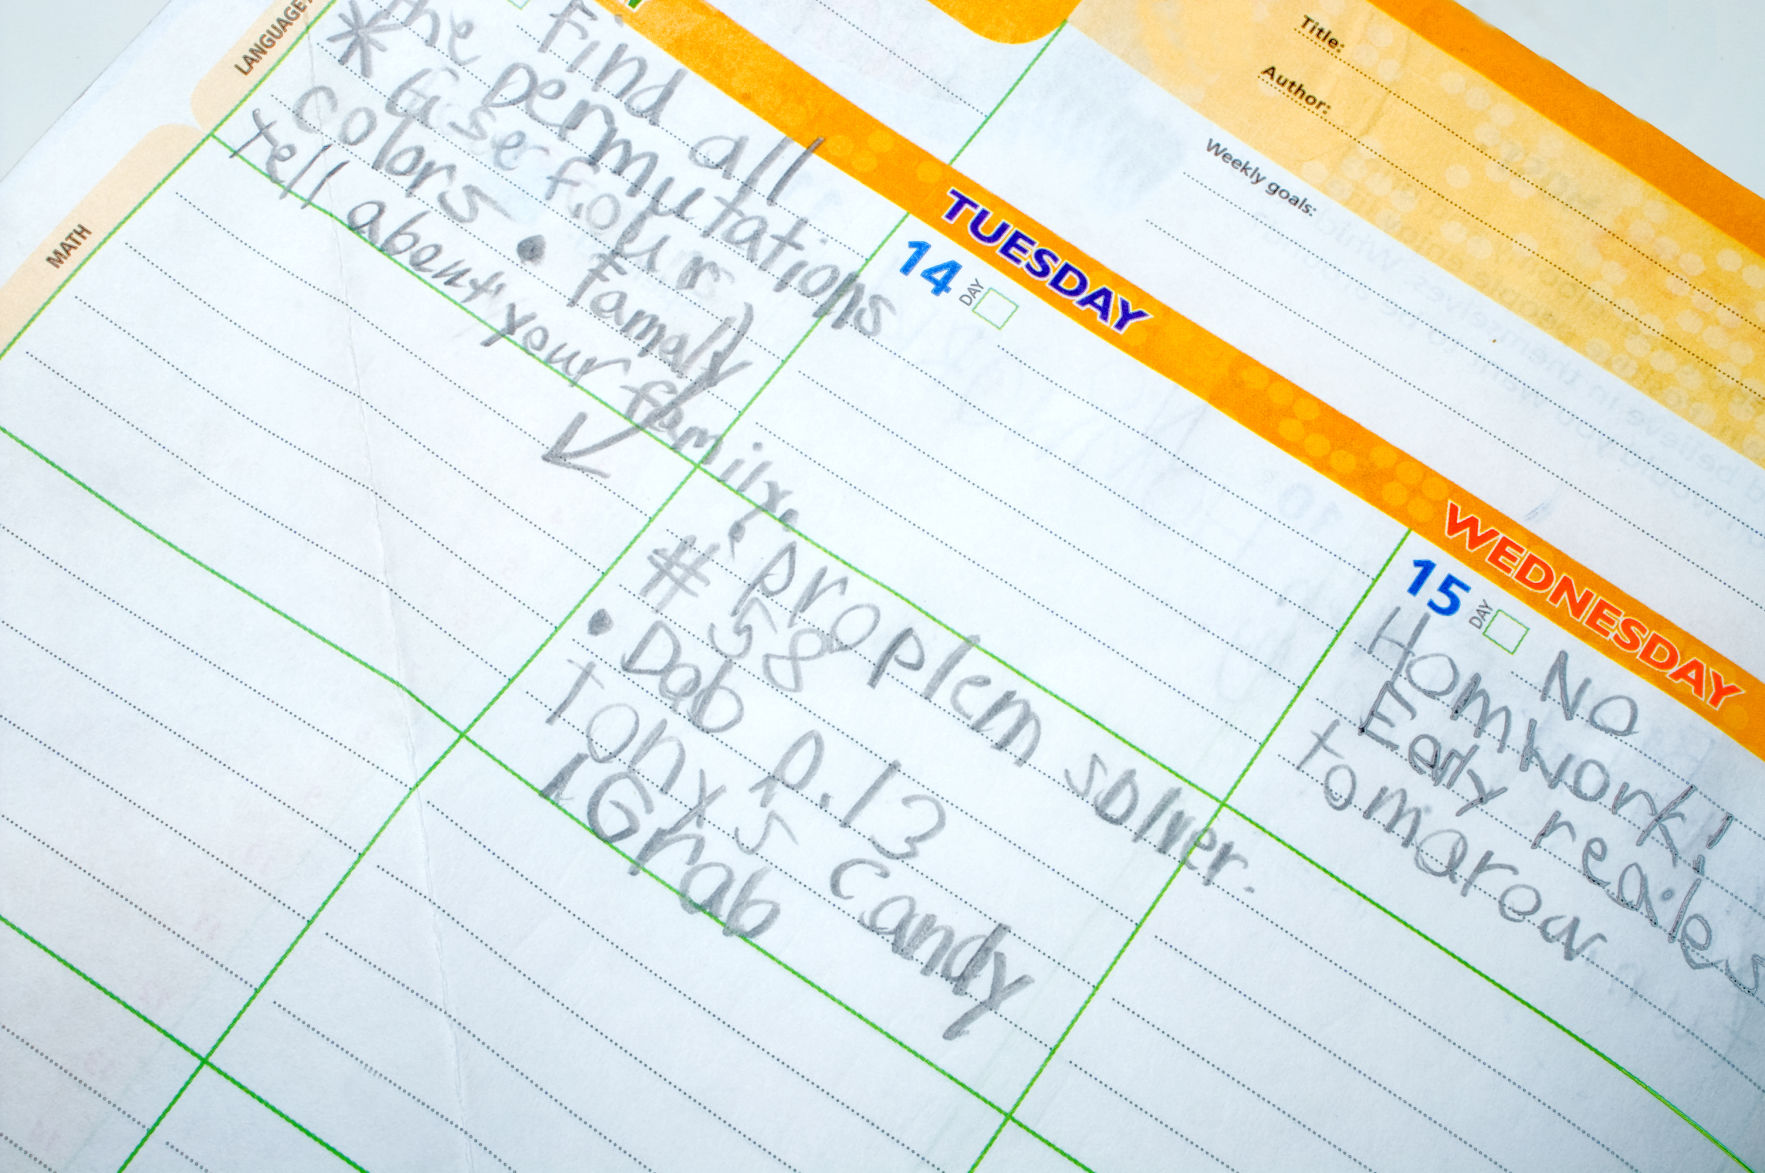 Title:
Author:
Weekly goals:
LANGUAGE
MATH
Find all
the permutations
* (use four)
colors • Famaly
tell about your family.
TUESDAY
14 DAY
• proplem solver.
# 58
• Dab p.13
Tony's candy
1 Grab
WEDNESDAY
15 DAY
No
Homwork!
Early
tomarow